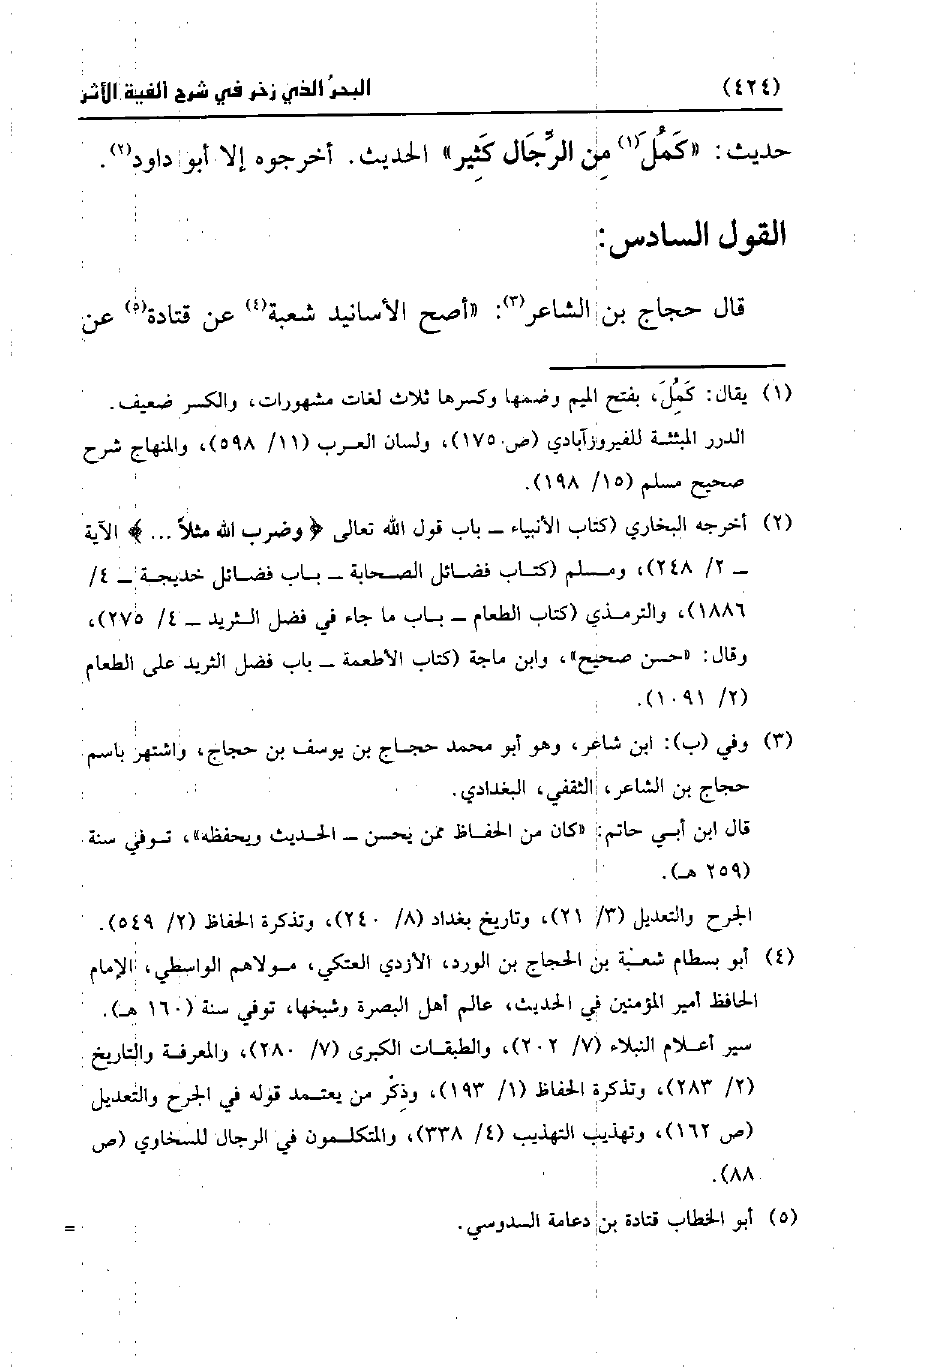 (٤٢٤) البحرُ الذي زخر في شرح ألفية الأثر
حديث: «كَمُلَ(١) مِن الرِّجَال كَثِير» الحديث. أخرجوه إلا أبو داود(٢).
القول السادس:
قال حجاج بن الشاعر(٣): «أصح الأسانيد شعبة(٤) عن قتادة(٥) عن
(١) يقال: كَمُِلَ، بفتح الميم وضمها وكسرها ثلاث لغات مشهورات، والكسر ضعيف.
الدرر المبثثة للفيروزآبادي (ص١٧٥)، ولسان العرب (١١/ ٥٩٨)، والمنهاج شرح
صحيح مسلم (١٥/ ١٩٨).
(٢) أخرجه البخاري (كتاب الأنبياء ــ باب قول الله تعالى ﴿ وضرب الله مثلاً ... ﴾ الآية
ــ ٢/ ٢٤٨)، ومسلم (كتاب فضائل الصحابة ــ باب فضائل خديجة ــ ٤/
١٨٨٦)، والترمذي (كتاب الطعام ــ باب ما جاء في فضل الثريد ــ ٤/ ٢٧٥)،
وقال: «حسن صحيح»، وابن ماجة (كتاب الأطعمة ــ باب فضل الثريد على الطعام
(٢/ ١٠٩١).
(٣) وفي (ب): ابن شاعر، وهو أبو محمد حجاج بن يوسف بن حجاج، واشتهر باسم
حجاج بن الشاعر، الثقفي، البغدادي.
قال ابن أبي حاتم: «كان من الحفاظ ممن يحسن ــ الحديث ويحفظه»، توفي سنة
(٢٥٩ هـ).
الجرح والتعديل (٣/ ٢١)، وتاريخ بغداد (٨/ ٢٤٠)، وتذكرة الحفاظ (٢/ ٥٤٩).
(٤) أبو بسطام شعبة بن الحجاج بن الورد، الأزدي العتكي، مولاهم الواسطي، الإمام
الحافظ أمير المؤمنين في الحديث، عالم أهل البصرة وشيخها، توفي سنة (١٦٠ هـ).
سير أعلام النبلاء (٧/ ٢٠٢)، والطبقات الكبرى (٧/ ٢٨٠)، والمعرفة والتاريخ
(٢/ ٢٨٣)، وتذكرة الحفاظ (١/ ١٩٣)، وذِكْر من يعتمد قوله في الجرح والتعديل
(ص ١٦٢)، وتهذيب التهذيب (٤/ ٣٣٨)، والمتكلمون في الرجال للسخاوي (ص
٨٨).
(٥) أبو الخطاب قتادة بن دعامة السدوسي. =